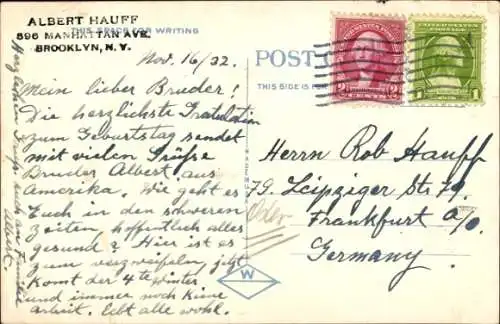 ALBERT HAUFF
THIS SPACE FOR WRITING
596 MANHATTAN AVE.
BROOKLYN, N.Y.
Nov. 16/32.
Mein lieber Bruder!
Die herzlichste Gratulation
zum Geburtstag sendet
mit vielen Grüße
Bruder Albert, aus
Amerika. Wie geht es
Euch in den schweren
Zeiten, hoffentlich alles
gesund? Hier ist es
zum verzweifeln, jetzt
komt der 4te Winter
und immer noch keine
arbeit. Lebt alle wohl.
Herzlichen auch an Familie
Albert.
POST
THIS SIDE IS FOR
2 2
1 1
Herrn Rob Hauff
79. Leipziger Str 79.
Oder
Frankfurt a/O.
Germany.
W